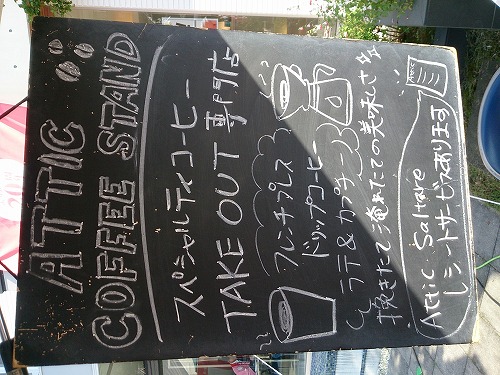 ATTIC
COFFEE STAND
スペシャルティコーヒー
TAKE OUT 専門店
フレンチプレス
ドリップコーヒー
ラテ&カプチーノ
挽きたて淹れたての美味しさ
Attic Saltare
レシートサービスあります